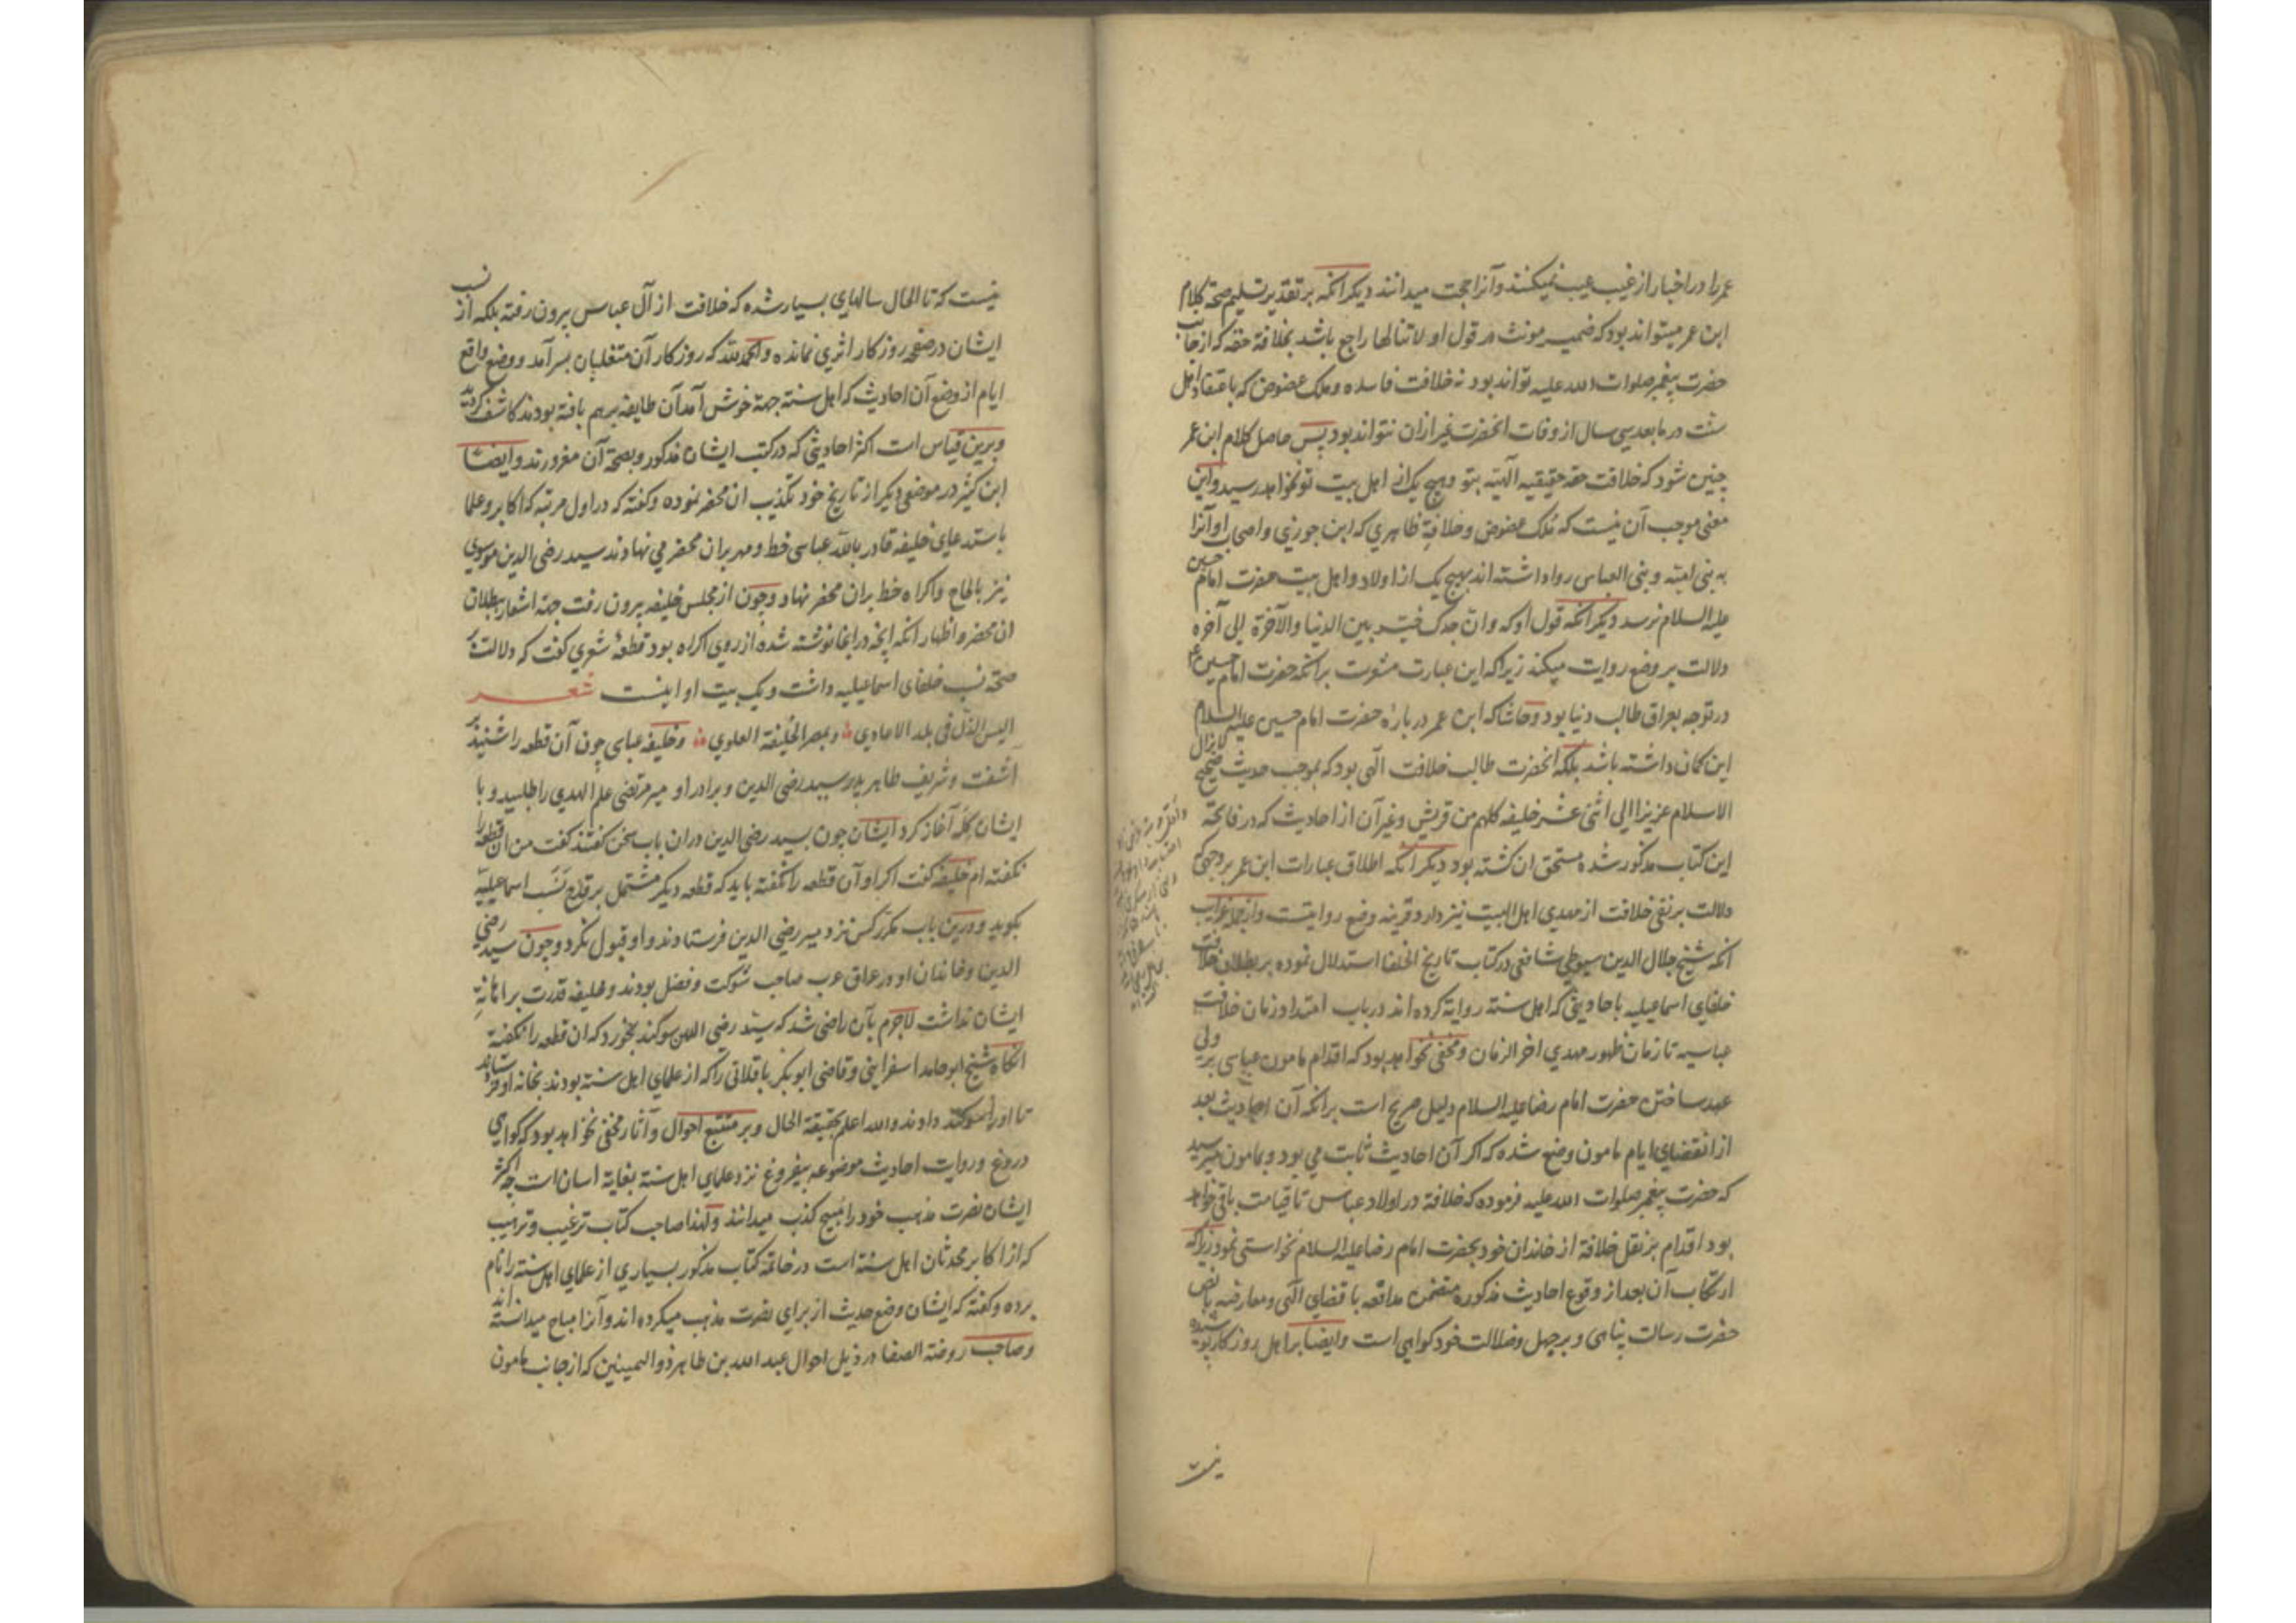 عمر را در اخبار از غیب عیب نمیکنند وآنرا حجت میدانند دیکر انکه بر تقدیر تسلیم صحة کلام
ابن عمر میتواند بود که ضمیر مونث در قول او لا تنالها راجع باشد بخلافة حقه که از جانب
حضرت پیغمبر صلوات الله علیه تواند بود نه خلافت فاسده وملک عضوض که باعتقاد اهل
سنت در مابعد سی سال از وفات انحضرت غیر ازان نتواند بود پس حاصل کلام ابن عمر
چنین شود که خلافت حقه حقیقیه الهیه بتو وهیچ یک از اهل بیت تو نخواهد رسید واین
معنی موجب آن نیست که ملک عضوض وخلافة ظاهری که ابن جوزی واصحاب او آنرا
به بنی امیه وبنی العباس روا داشته اند بهیچ یک از اولاد واهل بیت حضرت امام حسین
علیه السلام نرسد دیکر انکه قول او که وان جدک خیر بین الدنیا والآخرة الی آخره
دلالت بر وضع روایت میکند زیرا که این عبارت مشعرست برانکه حضرت امام حسین ع
در توجه بعراق طالب دنیا بود وحاشا که ابن عمر در باره حضرت امام حسین علیه السلام
این کمان داشته باشد بلکه انحضرت طالب خلافت الهی بود که بموجب حدیث صحیح لا یزال
الاسلام عزیزا الی اثنی عشر خلیفه کلهم من قریش وغیر آن از احادیث که در فاتحة
این کتاب مذکور شده مستحق ان کشته بود دیکر انکه اطلاق عبارات ابن عمر بر وجهی که
دلالت بر نفی خلافت از مهدی اهل البیت نیز دارد قرینه وضع روایتست واز جمله غرایب
انکه شیخ جلال الدین سیوطی شافعی در کتاب تاریخ الخلفا استدلال نموده بر بطلان خلافت
خلفای اسماعیلیه باحادیثی که اهل سنة روایة کرده اند در باب امتداد زمان خلافت
عباسیه تا زمان ظهور مهدی اخر الزمان ومخفی نخواهد بود که اقدام مامون عباسی بر ولی
عهد ساختن حضرت امام رضا علیه السلام دلیل صریح است برانکه آن احادیث بعد
از انقضای ایام مامون وضع شده که اکر آن احادیث ثابت می بود وبمامون میرسید
که حضرت پیغمبر صلوات الله علیه فرموده که خلافة در اولاد عباس تا قیامت باقی خواهد
بود اقدام بر نقل خلافة از خاندان خود بحضرت امام رضا علیه السلام نخواستی نمود زیرا که
ارتکاب آن بعد از وقوع احادیث مذکوره متضمن مدافعه با قضای الهی ومعارضه با نص
حضرت رسالت پناهی وبر جهل وضلالت خود کواهی است وایضا بر اهل روزکار پوشیده
نیست
نیست که تا الحال سالهای بسیار شده که خلافت از آل عباس بیرون رفته بلکه از نسب
ایشان در صفحه روزکار اثری نمانده والحمد لله که روزکار آن متغلبان بسر آمد ووضع واقع
ایام از وضع آن احادیث که اهل سنة جهة خوش آمد آن طایفه برهم بافته بودند کاشف کردید
وبرین قیاس است اکثر احادیثی که در کتب ایشان مذکور وبصحة آن مغرورند وایضا
ابن کثیر در موضعی دیکر از تاریخ خود تکذیب ان محضر نموده وکفته که در اول مرتبه که اکابر وعلما
باستدعای خلیفه قادر بالله عباسی خط ومهر بران محضر می نهادند سید رضی الدین موسوی
نیز بالحاح واکراه خط بران محضر نهاد وچون از مجلس خلیفه بیرون رفت جهة اشعار ببطلان
ان محضر واظهار انکه انچه در انجا نوشته شده از روی اکراه بود قطعه شعری کفت که دلالت بر
صحة نسب خلفای اسماعیلیه داشت ویک بیت او اینست شعر
الیس الذل فی بلد الاعادی وبمصر الخلیفة العلوی وخلیفه عباسی چون آن قطعه را شنید بر
آشفت وشریف طاهر پدر سید رضی الدین وبرادر او میر مرتضی علم الهدی را طلبید وبا
ایشان کله آغاز کرد ایشان چون بسید رضی الدین دران باب سخن کفتند کفت من ان قطعه را
نکفته ام خلیفه کفت اکر او آن قطعه را نکفته باید که قطعه دیکر مشتمل بر قدح نسب اسماعیلیه
بکوید ودرین باب مکرر کس نزد میر رضی الدین فرستادند واو قبول نکرد وچون سید رضی
الدین وخاندان او در عراق عرب صاحب شوکت وفضل بودند وخلیفه قدرت بر اهانة
ایشان نداشت لاجرم بآن راضی شد که سید رضی الدین سوکند بخورد که ان قطعه را نکفته
انکاه شیخ ابو حامد اسفراینی وقاضی ابو بکر باقلانی را که از علمای اهل سنة بودند بخانه او فرستادند
تا او را سوکند دادند والله اعلم بحقیقة الحال وبر متتبع احوال وآثار مخفی نخواهد بود که کواهی
دروغ وروایت احادیث موضوعه بیفروغ نزد علمای اهل سنة بغایة اسان است چه اکثر
ایشان نصرت مذهب خود را مبیح کذب میدانند ولهذا صاحب کتاب ترغیب وترهیب
که از اکابر محدثان اهل سنة است در خاتمه کتاب مذکور بسیاری از علمای اهل سنة را نام
برده وکفته که ایشان وضع حدیث از برای نصرت مذهب میکرده اند وآنرا مباح میدانسته اند
وصاحب روضة الصفا در ذیل احوال عبد الله بن طاهر ذو الیمینین که از جانب مامون